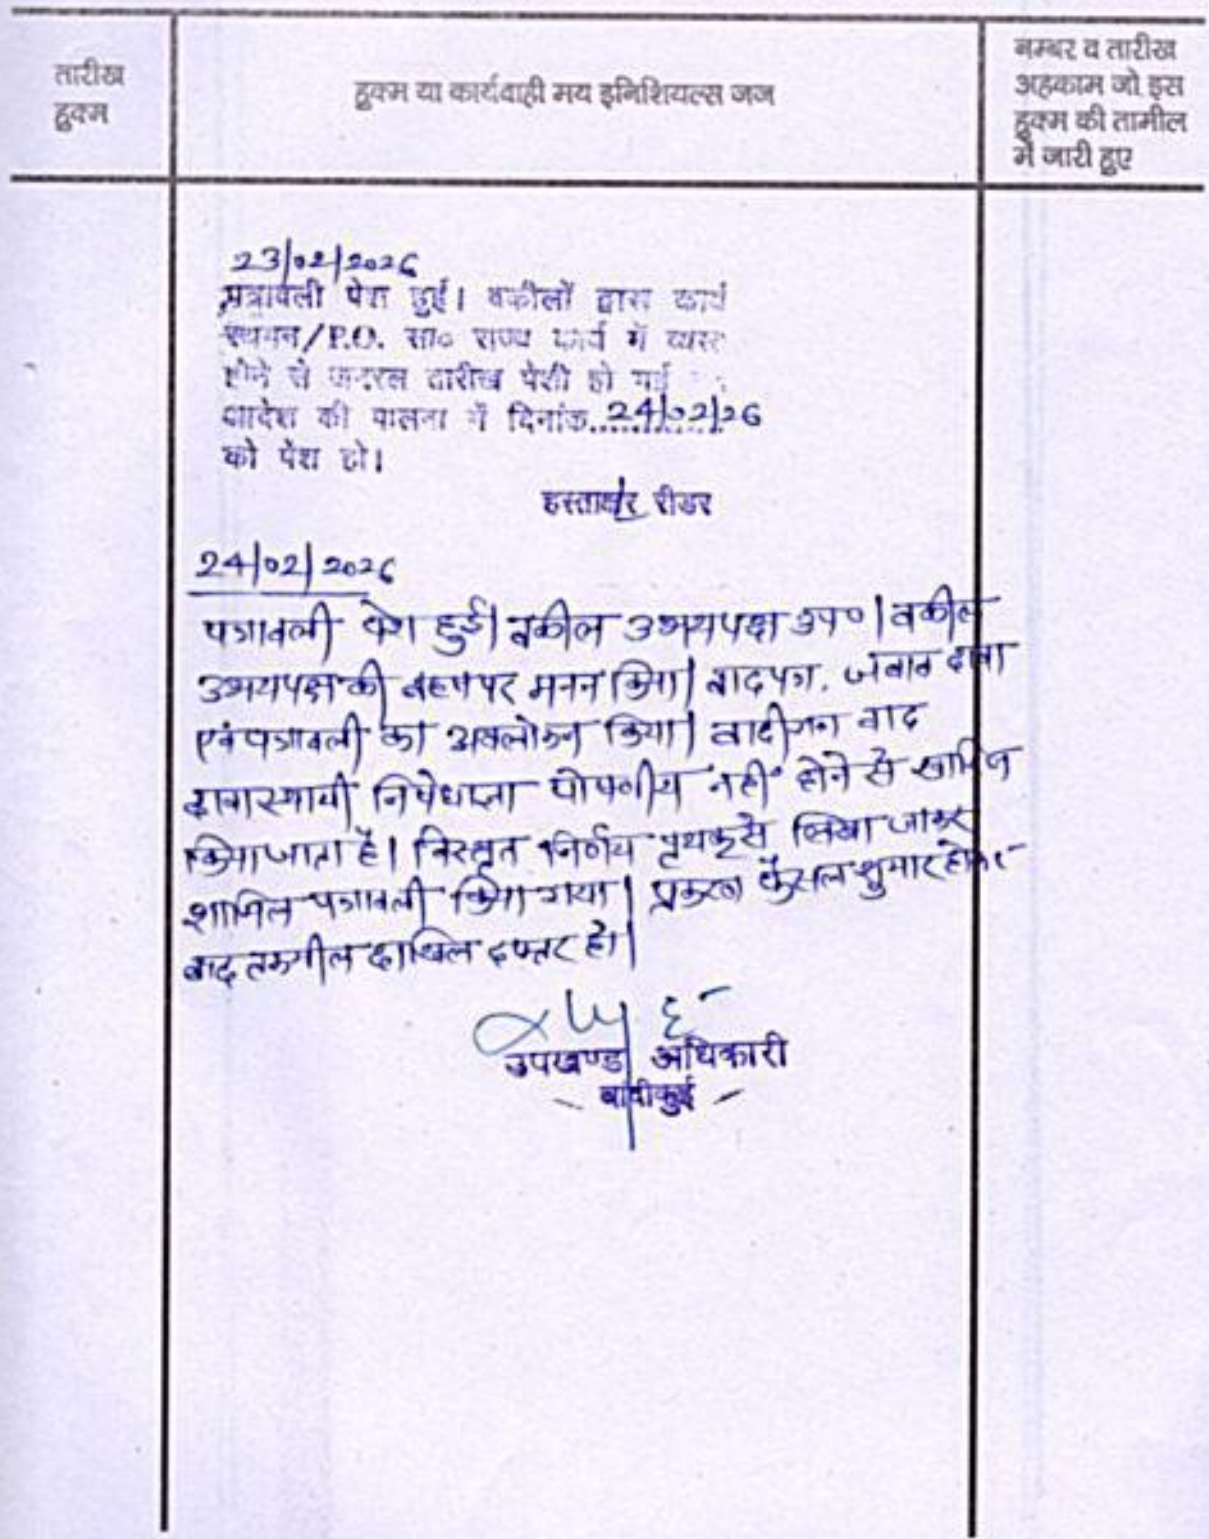 तारीख
हुक्म
हुक्म या कार्यवाही मय इनिशियल्स जज
नम्बर व तारीख
अहकाम जो इस
हुक्म की तामील
में जारी हुए
23/02/2026
पत्रावली पेश हुई। वकीलों द्वारा कार्य
स्थगन/P.O. सा० राज्य कार्य में व्यस्त
होने से जनरल तारीख पेशी हो गई
आदेश की पालना में दिनांक..24/02/26
को पेश हो।
हस्ताक्षर रीडर
24/02/2026
पत्रावली पेश हुई। वकील उभयपक्ष उप०। वकील
उभयपक्ष की बहस पर मनन किया। वादपत्र, जवाब दावा
एवं पत्रावली का अवलोकन किया। वादीगण वाद
निषेधाज्ञा पोषणीय नहीं होने से खारिज
किया जाता है। विस्तृत निर्णय पृथक से लिखा जाकर
शामिल पत्रावली किया गया। प्रकरण फैसल शुमार होकर
बाद तकमील दाखिल दफ्तर हो।
उपखण्ड अधिकारी
बांदीकुई